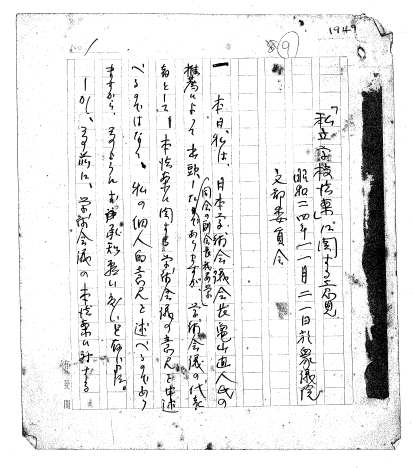 1949
(9)
「私立学校法案」に関する意見
昭和二四年一一月二一日於衆議院
文部委員会
一 本日、私は、日本学術会議会長亀山直人氏の
推薦によって出頭したのでありますが、学術会議の代表
者として、本法案に関する学術会議の意見を申述
べるのではなく、私の個人的意見を述べるのであり
ますから、そのようにお承知願いたいと存じます。
しかし、その前に、学術会議の本法案に対する